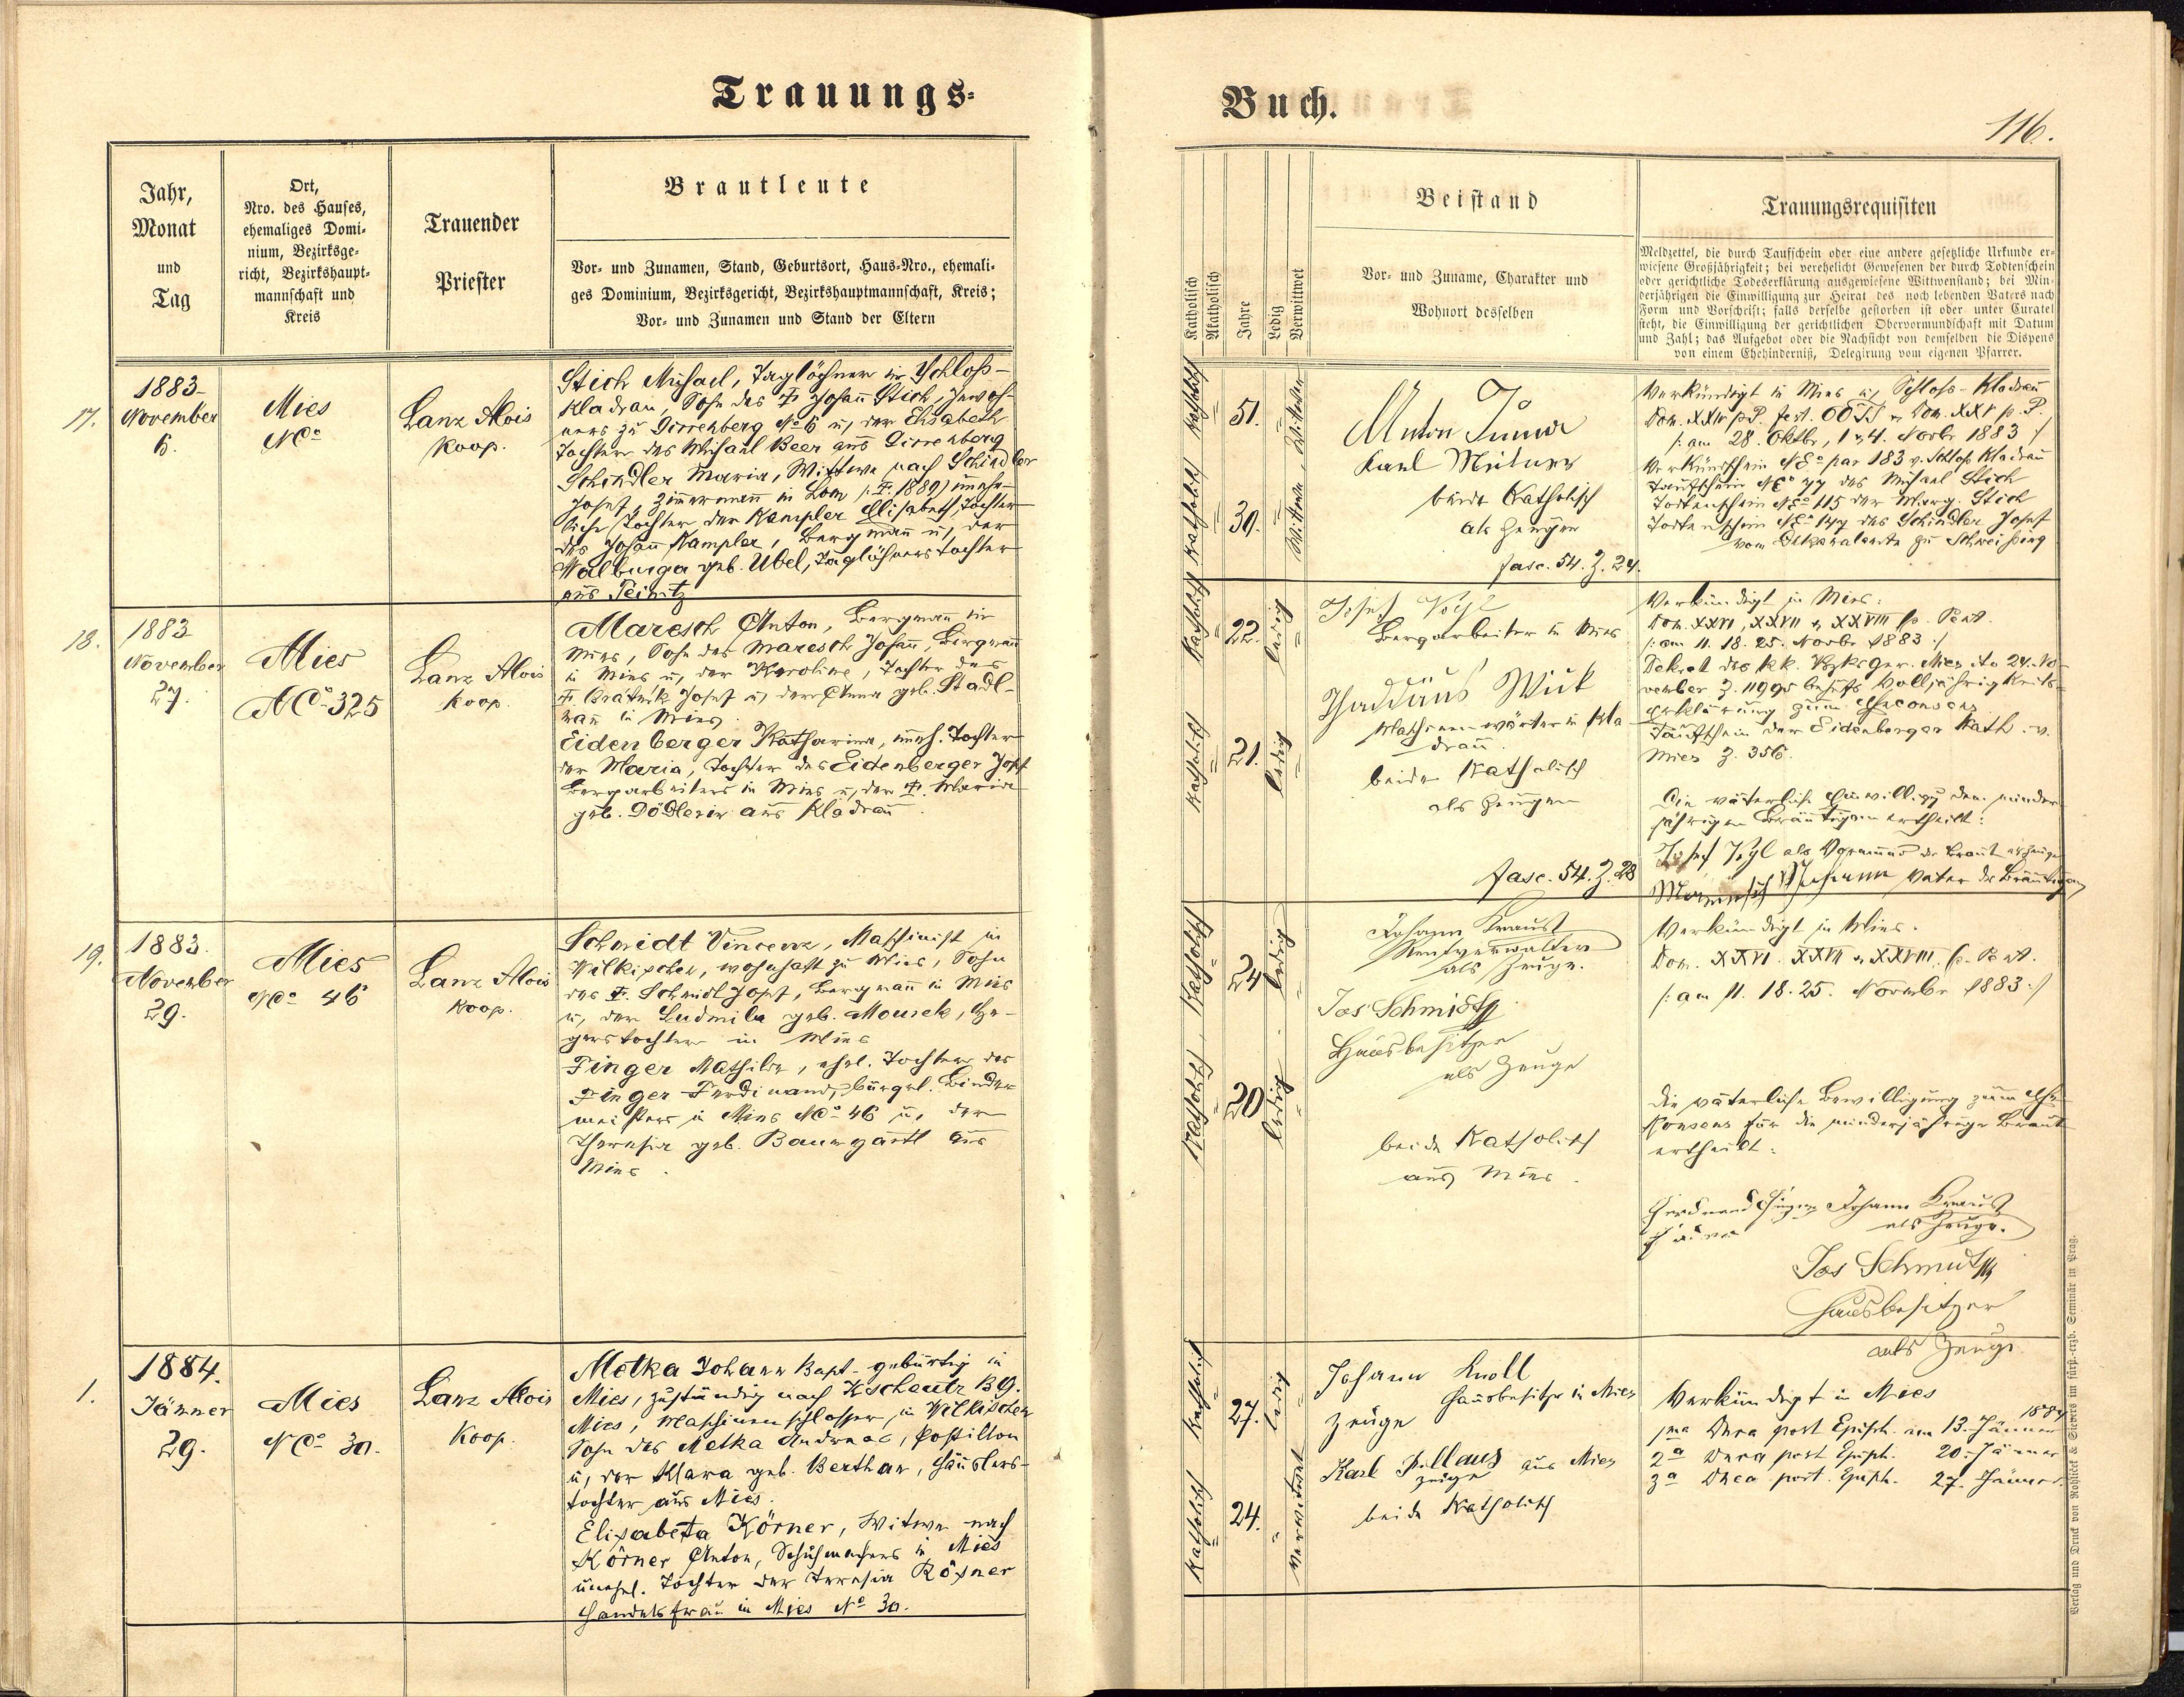 Trauungs-
Buch.
116.
Jahr,
Monat
und
Tag
Ort,
Nro. des Hauses,
ehemaliges Domi-
nium, Bezirksge-
richt, Bezirkshaupt-
mannschaft und
Kreis
Trauender
Priester
Brautleute
Vor- und Zunamen, Stand, Geburtsort, Haus-Nro., ehemali-
ges Dominium, Bezirksgericht, Bezirkshauptmannschaft, Kreis;
Vor- und Zunamen und Stand der Eltern
Katholisch
Akatholisch
Jahre
Ledig
Verwittwet
Beistand
Vor- und Zuname, Charakter und
Wohnort desselben
Trauungsrequisiten
Meldzettel, die durch Taufschein oder eine andere gesetzliche Urkunde er-
wiesene Großjährigkeit; bei verehelicht Gewesenen der durch Todtenschein
oder gerichtliche Todeserklärung ausgewiesene Wittwenstand; bei Min-
derjährigen die Einwilligung zur Heirat des noch lebenden Vaters nach
Form und Vorschrift; falls derselbe gestorben ist oder unter Curatel
steht, die Einwilligung der gerichtlichen Obervormundschaft mit Datum
und Zahl; das Aufgebot oder die Nachsicht von demselben die Dispens
von einem Ehehinderniß, Delegirung vom eigenen Pfarrer.
17.
1883
November
6.
Mies
NC°
Lanz Alois
Koop.
Stich Michael, Taglöhner in Schloß-
Kladrau, Sohn des † Johann Stich, Inwoh-
ners zu Girrehberg N° 6 u, der Elisabeth
Tochter des Michael Beer aus Girrehberg
Schindler Maria, Wittwe nach Schindler
Josef, Zimmermann in Lom /: † 1889) uneh-
liche Tochter der Kampler Elisabeth, Tochter
des Johann Kampler, Bergmann u, der
Walburga geb. Ubel, Taglöhnerstochter
aus Teinitz
Katholisch
51.
Wittwer
Katholisch
30.
Wittwe
Anton
Karl
beide Katholisch
als Zeugen
fasc. 54. Z. 24.
Verkündigt in Mies u, Schloß-Kladrau
Dom. XXIV p. P. fest. OO SS u Dom. XXV p. P.
/: am 28. Oktbr, 1 u 4. Novbr 1883 :/
Verkündschein NE° par 183 v. Schloß Kladrau
Taufschein NE° 77 des Michael Stich
Todtenschein NE° 115 der Marg. Stich
Todtenschein NE° 147 des Schindler Josef
vom Dekanalamte zu Schweißing
18.
1883
November
27.
Mies
NC° 325
Lanz Alois
Koop.
Maresch Anton, Bergmann in
Mies, Sohn des Maresch Johann, Bergmann
in Mies u, der Karoline, Tochter des
† Josef u, der Anna geb. Stadl-
mann in Mies.
Eidenberger Katharina, uneh. Tochter
der Maria, Tochter des Eidenberger Josef
Bergarbeiters in Mies u, der † Maria
geb. Dödlerin aus Kladrau
Katholisch
22.
ledig
Katholisch
21.
ledig
Josef Vogl
Bergarbeiter in Mies
Thaddäus Wick
wärter in Kla
drau.
beide Katholisch
als Zeugen
fasc. 54. Z. 28
Verkündigt in Mies:
Dom. XXVI, XXVII u, XXVIII p. Pent.
/: am 11. 18. 25. Novbr 1883 :/
Dekret des kk. Bzksger. Mies dto 24. No-
vember Z. 11995 behufs Volljährigkeits-
erklärung zum Ehekonsens
Taufschein der Eidenberger Kath. v.
Mies Z. 356.
Die väterliche Einwilligung den minder
jährigen Bräutigam ertheilt:
Josef Vogl als Vormund der Braut als Zeuge
Maresch Johann Vater des Bräutigams
19.
1883.
November
29.
Mies
NC° 46
Lanz Alois
Koop.
Schmidt Vincenz, Maschinist in
Wilkischen, wohnhaft zu Mies, Sohn
des †. Schmidt Josef, Bergmann in Mies
u, der Ludmila geb. Mourek, He-
gerstochter in Mies
Finger Mathilde, ehel. Tochter des
Finger Ferdinand, bürgerl. Binder
meisters in Mies NC° 46 u, der
Theresia geb. Baumgartl aus
Mies.
Katholisch
24
ledig
Katholisch
20
ledig
Johann Kraust
Rentverwalter
als Zeuge.
Jos Schmidt
Hausbesitzer
als Zeuge
beide Katholisch
aus Mies.
Verkündigt in Mies.
Dom. XXVI. XXVII u, XXVIII. p. Pent.
/: am 11. 18. 25. Novembr 1883 :/
Die väterliche Bewilligung zum Ehe-
konsens für die minderjährige Braut
ertheilt:
Ferdinand Finger Johann Kraust
als Zeuge.
Jos Schmidt
Hausbesitzer
als Zeuge
1.
1884.
Jänner
29.
Mies
NC° 30.
Lanz Alois
Koop.
Metka Johann Bapt. gebürtig in
Mies, zuständig nach Kscheutz Bg.
Mies, Maschinenschlosser in Wilkischen
Sohn des Metka Andreas, Postillon
u, der Klara geb. Berthan, Häuslers-
tochter aus Mies.
Elisabeta Körner, Witwe nach
Körner Anton, Schuhmachers in Mies
unehel. Tochter der Teresia Rösner
Handelsfrau in Mies N° 30.
Katholisch
27.
ledig
Katholisch
24.
verwitwet
Johann Knoll
Hausbesitzer in Mies
Zeuge
Karl Pillaus aus Mies
Zeuge
beide Katholisch
Verkündigt in Mies
1ma Dnca post Epiph. am 13. Jänner 1884
2a Dnca post Epiph. 20. Jänner
3a Dnca post. Epiph. 27. Jänner.
Verlag und Druck von Rohliček & Sievers im fürst.-erzb. Seminär in Prag.